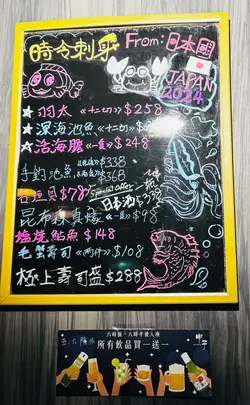 時令刺身 From: 日本國
JAPAN
2024
★ 羽太 <十二切> $258
★ 深海池魚 <十二切>
★ 活海膽 <一盒> $248
手釣池魚 $338
$368
岩垣貝 $78
Special Offer
日本酒
昆布森真蠔 <一隻> $98
塩焼鮎魚 $148
毛蟹壽司 <兩件> $108
極上壽司盛 $288
六時前、八時半後入座
所有飲品買一送一
五、六除外